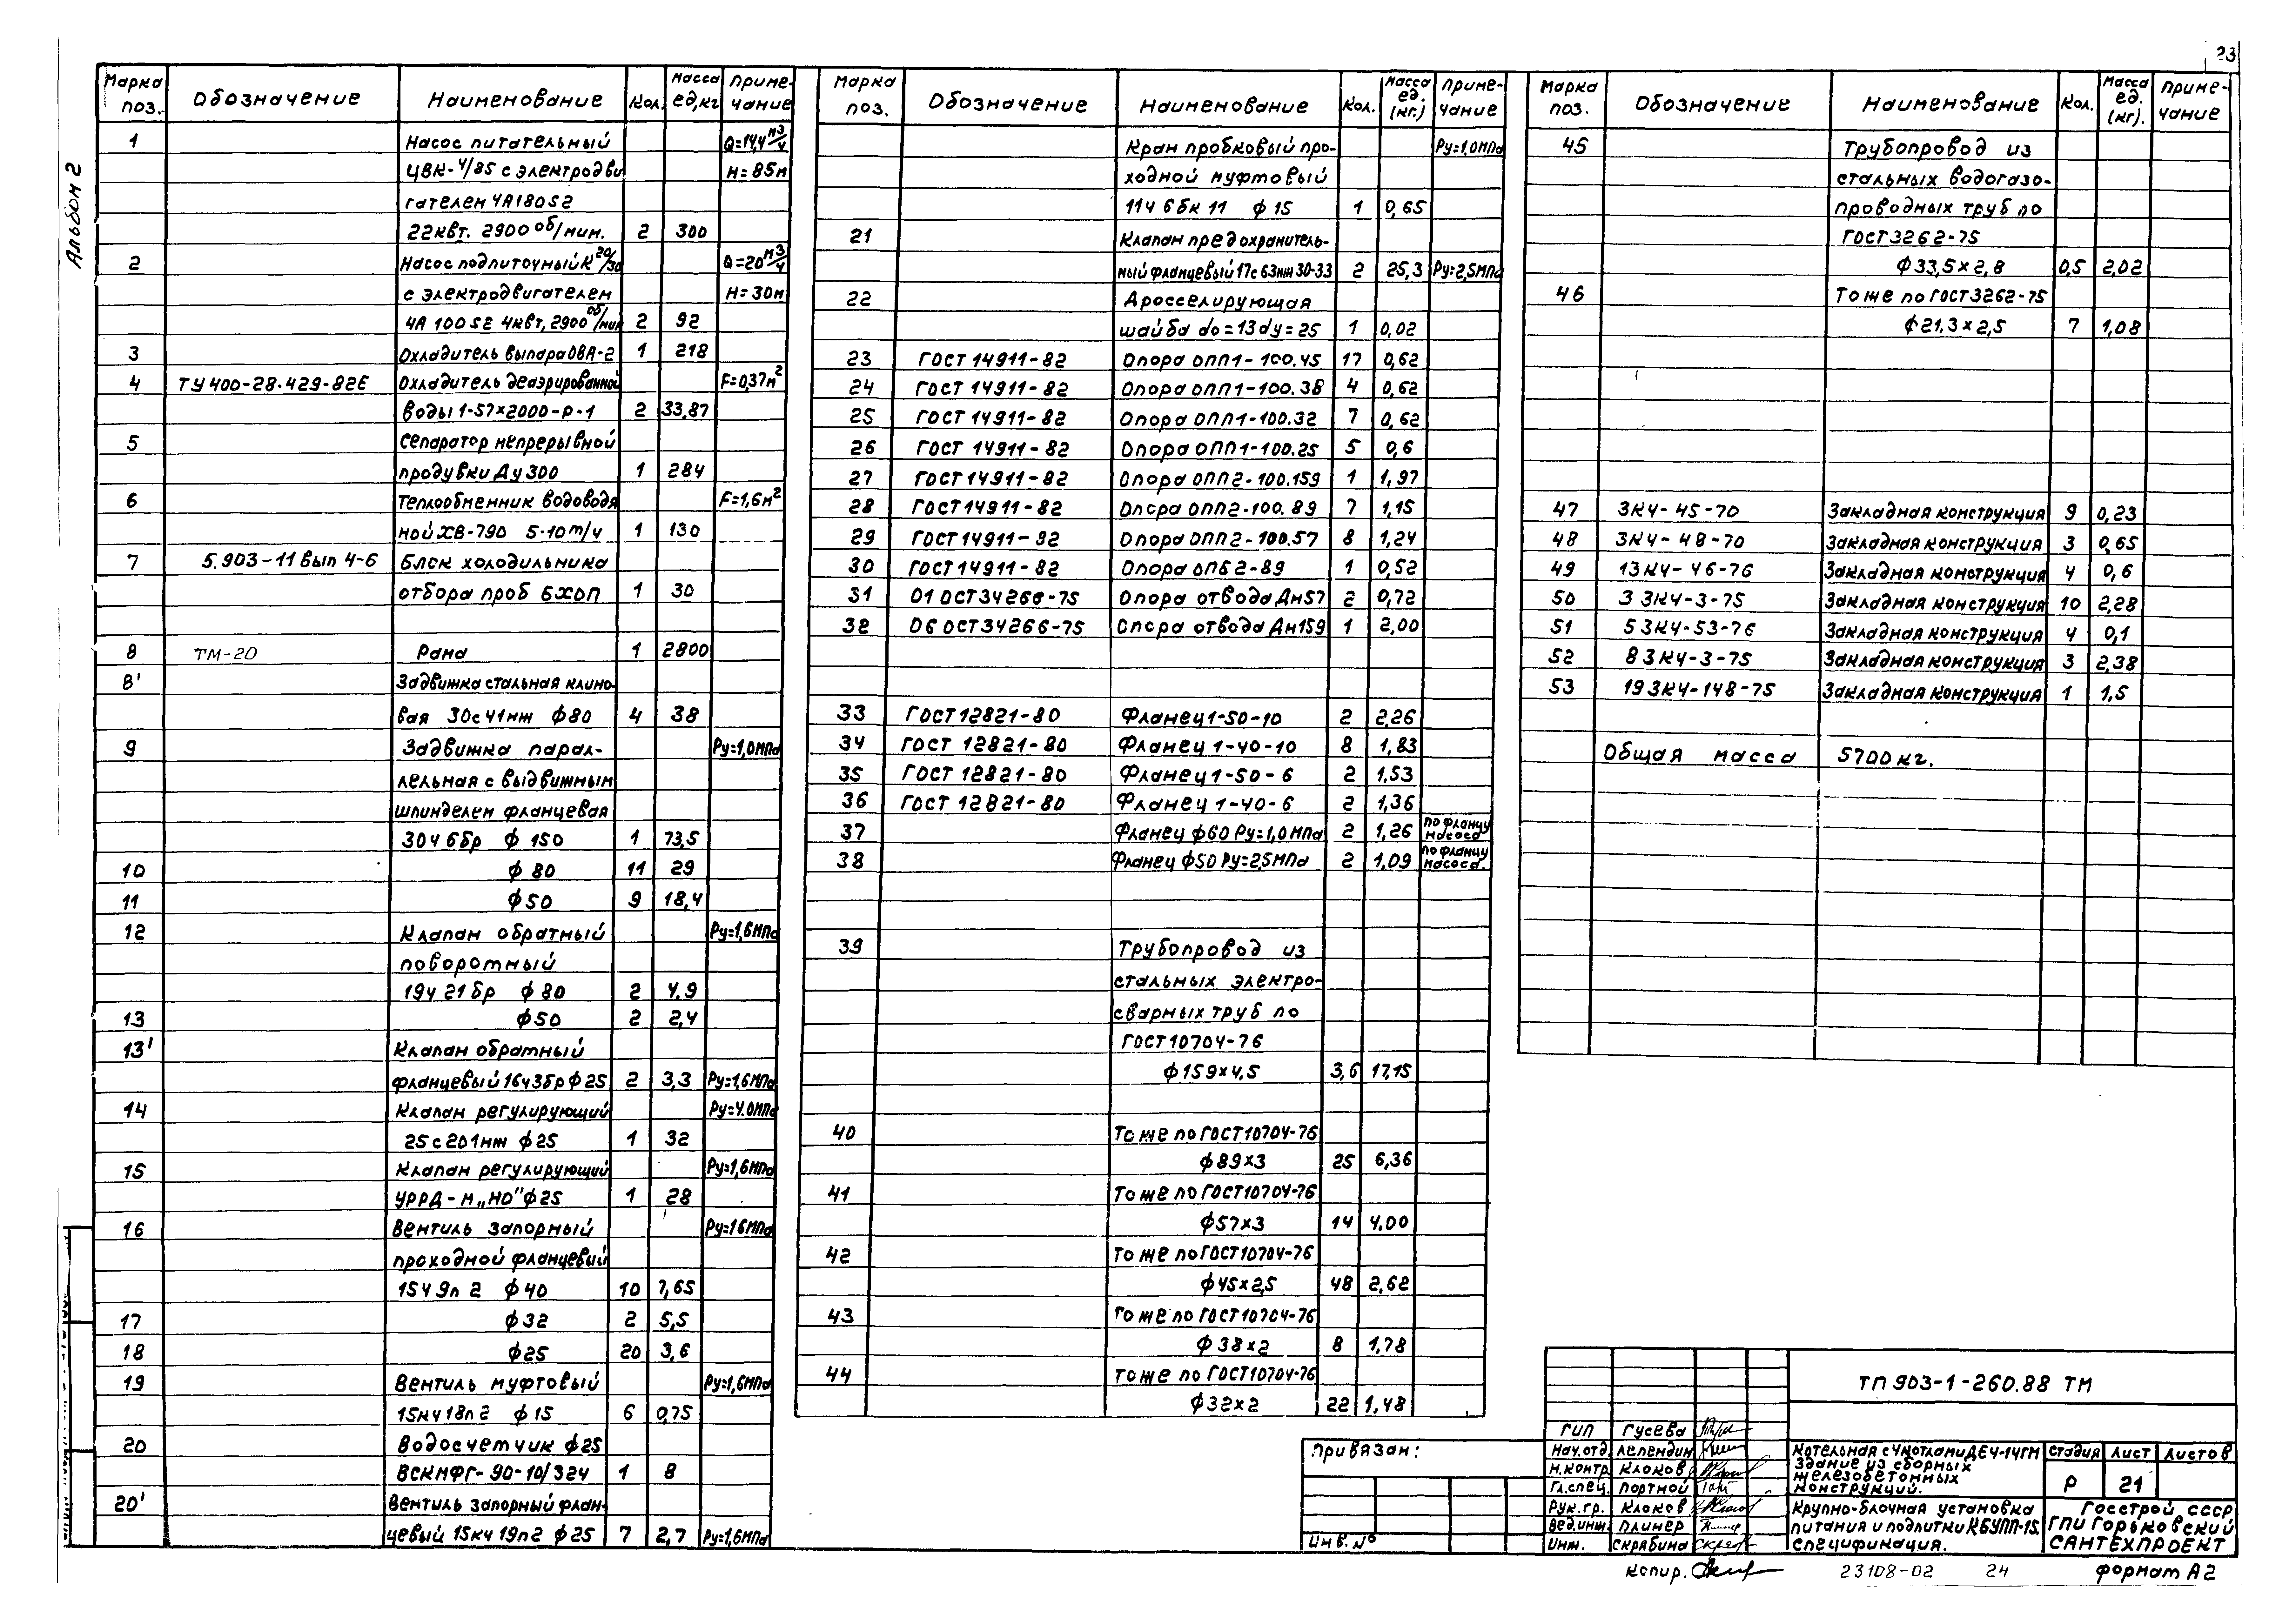 23
Альбом 2
Марка поз. Обозначение Наименование Кол. Масса ед,кг Примечание
1 Насос питательный Q=14,4 м3/ч
ЦВК-4/85 с электродви H=85м
гателем 4А180S2
22квт. 2900 об/мин. 2 300
2 Насос подпиточный К 20/30 Q=20 м3/ч
с электродвигателем H=30м
4А 100S2 4квт, 2900 об/мин 2 92
3 Охладитель выпара ОВА-2 1 218
4 ТУ 400-28-429-82Е Охладитель деаэрированной F=0,37м2
воды 1-57×2000-Р-1 2 33,87
5 Сепаратор непрерывной
продувки Ду 300 1 284
6 Теплообменник водоводя F=1,6м2
ной ХВ-790 5-10т/ч 1 130
7 5.903-11 Вып 4-6 Блок холодильника
отбора проб БХОП 1 30
8 ТМ-20 Рама 1 2800
8' Задвижка стальная клино-
вая 30с41нж ф80 4 38
9 Задвижка парал- Ру=1,0МПа
лельная с выдвижным
шпинделем фланцевая
30ч 6бр ф 150 1 73,5
10 ф 80 11 29
11 ф50 9 18,4
12 Клапан обратный Ру=1,6МПа
поворотный
19ч 21бр ф 80 2 4,9
13 ф50 2 2,4
13' Клапан обратный
фланцевый 16ч3бр ф 25 2 3,3 Ру=1,6МПа
14 Клапан регулирующий Ру=4.0МПа
25с201нж ф25 1 32
15 Клапан регулирующий Ру=1,6МПа
УРРД-М„НО" ф25 1 28
16 Вентиль запорный Ру=1,6МПа
проходной фланцевый
15ч 9п 2 ф 40 10 7,65
17 ф32 2 5,5
18 ф25 20 3,6
19 Вентиль муфтовый Ру=1,6МПа
15кч18п2 ф 15 6 0,75
20 Водосчетчик ф25
ВСКМФГ-90-10/32ч 1 8
20' Вентиль запорный флан-
цевый 15кч 19п2 ф 25 7 2,7 Ру=1,6МПа
Марка поз. Обозначение Наименование Кол. Масса ед. (кг.) Примечание
Кран пробковый про- Ру=1,0МПа
ходной муфтовый
11ч 6бк 11 ф 15 1 0,65
21 Клапан предохранитель-
ный фланцевый 17с 63нж 30-33 2 25,3 Ру=2,5МПа
22 Дросселирующая
шайба dо=13 dу=25 1 0,02
23 ГОСТ 14911-82 Опора ОПП1-100.45 17 0,62
24 ГОСТ 14911-82 Опора ОПП1-100.38 4 0,62
25 ГОСТ 14911-82 Опора ОПП1-100.32 7 0,62
26 ГОСТ 14911-82 Опора ОПП1-100.25 5 0,6
27 ГОСТ 14911-82 Опора ОПП2-100.159 1 1,97
28 ГОСТ 14911-82 Опора ОПП2-100.89 7 1,15
29 ГОСТ 14911-82 Опора ОПП2-100.57 8 1,24
30 ГОСТ 14911-82 Опора ОПБ2-89 1 0,52
31 01 ОСТ34266-75 Опора отвода Дн57 2 0,72
32 06 ОСТ34266-75 Опора отвода Дн159 1 2,00
33 ГОСТ 12821-80 Фланец 1-50-10 2 2,26
34 ГОСТ 12821-80 Фланец 1-40-10 8 1,83
35 ГОСТ 12821-80 Фланец 1-50-6 2 1,53
36 ГОСТ 12821-80 Фланец 1-40-6 2 1,36
37 Фланец ф60 Ру=1,0МПа 2 1,26 по фланцу насоса
38 Фланец ф50 Ру=2,5МПа 2 1,09 по фланцу насоса.
39 Трубопровод из
стальных электро-
сварных труб по
ГОСТ10704-76
ф159×4,5 3,6 17,15
40 То же по ГОСТ10704-76
ф89×3 25 6,36
41 То же по ГОСТ10704-76
ф57×3 14 4,00
42 То же по ГОСТ10704-76
ф45×2,5 48 2,62
43 То же по ГОСТ10704-76
ф38×2 8 1,78
44 То же по ГОСТ10704-76
ф32×2 22 1,48
Марка поз. Обозначение Наименование Кол. Масса ед. (кг). Примечание
45 Трубопровод из
стальных водогазо-
проводных труб по
ГОСТ3262-75
ф33,5×2,8 0,5 2,02
46 То же по ГОСТ3262-75
ф21,3×2,5 7 1,08
47 3К4-45-70 Закладная конструкция 9 0,23
48 3К4-48-70 Закладная конструкция 3 0,65
49 13К4-46-76 Закладная конструкция 4 0,6
50 3 3К4-3-75 Закладная конструкция 10 2,28
51 5 3К4-53-76 Закладная конструкция 4 0,1
52 8 3К4-3-75 Закладная конструкция 3 2,38
53 19 3К4-148-75 Закладная конструкция 1 1,5
Общая масса 5700кг.
Привязан:
Инв. №
ТП 903-1-260.88 ТМ
ГИП Гусева
Нач.отд. Лепендин
Н.контр. Клоков
Гл.спец. Портной
Рук.гр. Клоков
Вед.инж. Плинер
Инж. Скрябина
Котельная с 4 котлами ДЕ4-14ГМ
Здание из сборных
железобетонных
конструкций.
Стадия Лист Листов
Р 21
Крупно-блочная установка
питания и подпитки КБУПП-15.
Спецификация.
Госстрой СССР
ГПИ Горьковский
САНТЕХПРОЕКТ
Копир.
23108-02 24
формат А2